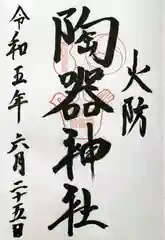 火防
陶器神社
令和五年 六月二十五日